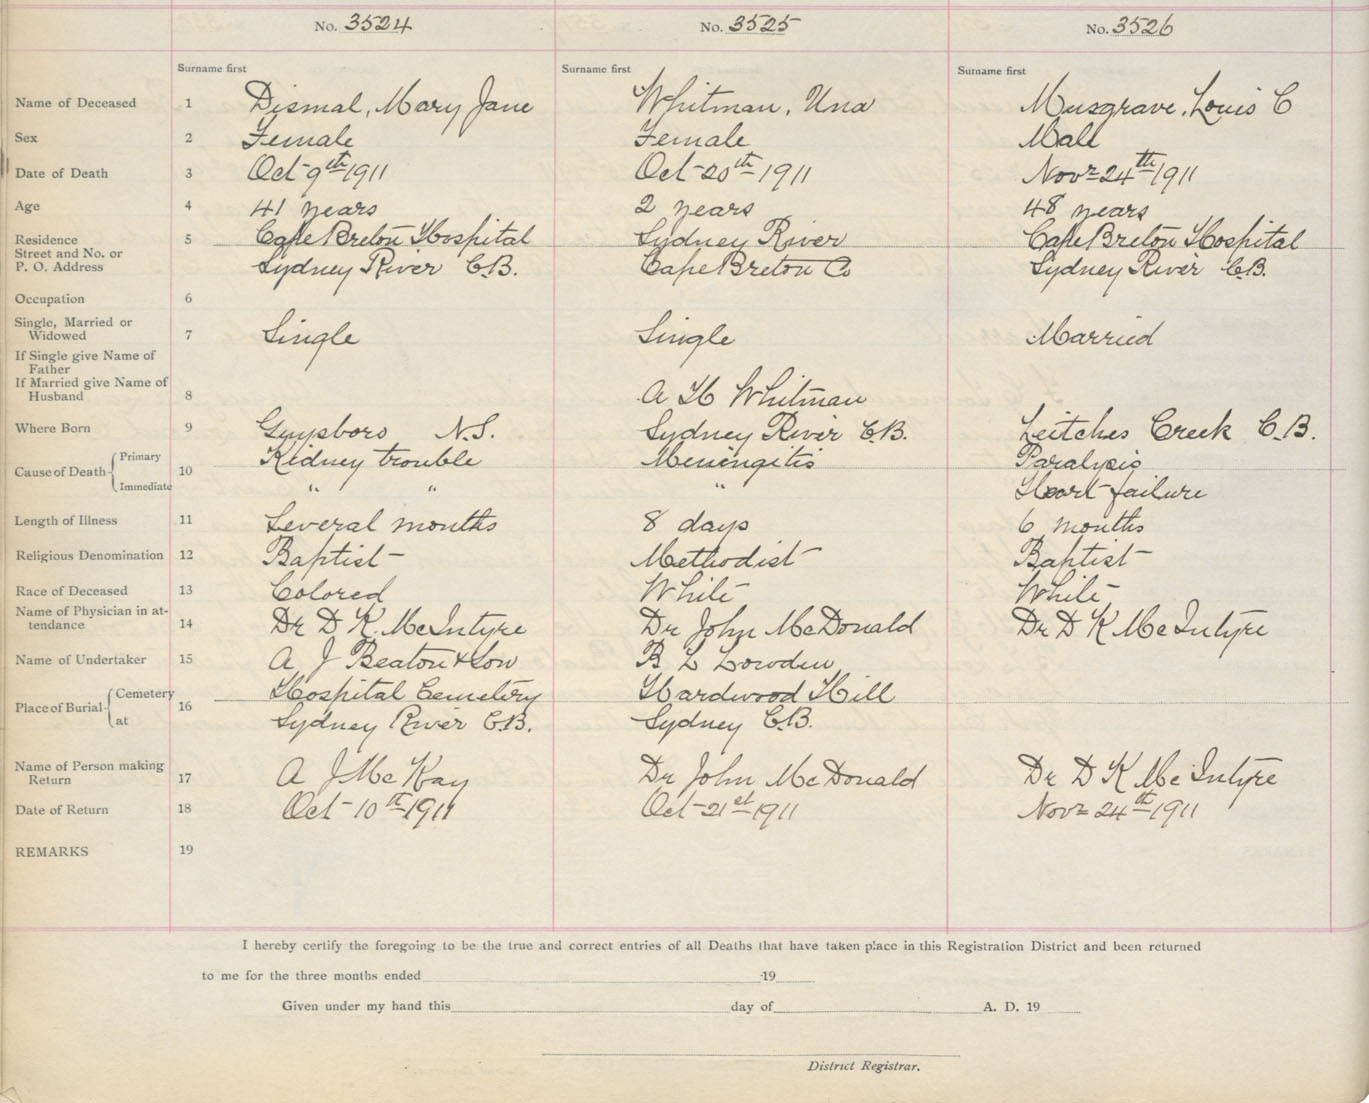 No. 3524 No. 3525 No. 3526
Surname first Surname first Surname first
Name of Deceased 1 Dismal, Mary Jane Whitman, Una Musgrave, Louis C
Sex 2 Female Female Male
Date of Death 3 Oct 9th 1911 Oct 20th 1911 Novr 24th 1911
Age 4 41 years 2 years 48 years
Residence 5 Cape Breton Hospital Sydney River Cape Breton Hospital
Street and No. or
P. O. Address Sydney River C.B. Cape Breton Co Sydney River C.B.
Occupation 6
Single, Married or
Widowed 7 Single Single Married
If Single give Name of
Father
If Married give Name of
Husband 8 A H Whitman
Where Born 9 Guysboro N.S. Sydney River C.B. Leitches Creek C.B.
Cause of Death { Primary 10 Kidney trouble Meningitis Paralysis
Immediate " " " Heart failure
Length of Illness 11 Several months 8 days 6 months
Religious Denomination 12 Baptist Methodist Baptist
Race of Deceased 13 Colored White White
Name of Physician in at-
tendance 14 Dr D K McIntyre Dr John McDonald Dr D K McIntyre
Name of Undertaker 15 A J Beaton & Son B L Lowden
Place of Burial { Cemetery 16 Hospital Cemetery Hardwood Hill
at Sydney River C.B. Sydney C.B.
Name of Person making
Return 17 A J McKay Dr John McDonald Dr D K McIntyre
Date of Return 18 Oct 10th 1911 Oct 21st 1911 Novr 24th 1911
REMARKS 19
I hereby certify the foregoing to be the true and correct entries of all Deaths that have taken place in this Registration District and been returned
to me for the three months ended 19
Given under my hand this day of A. D. 19
District Registrar.